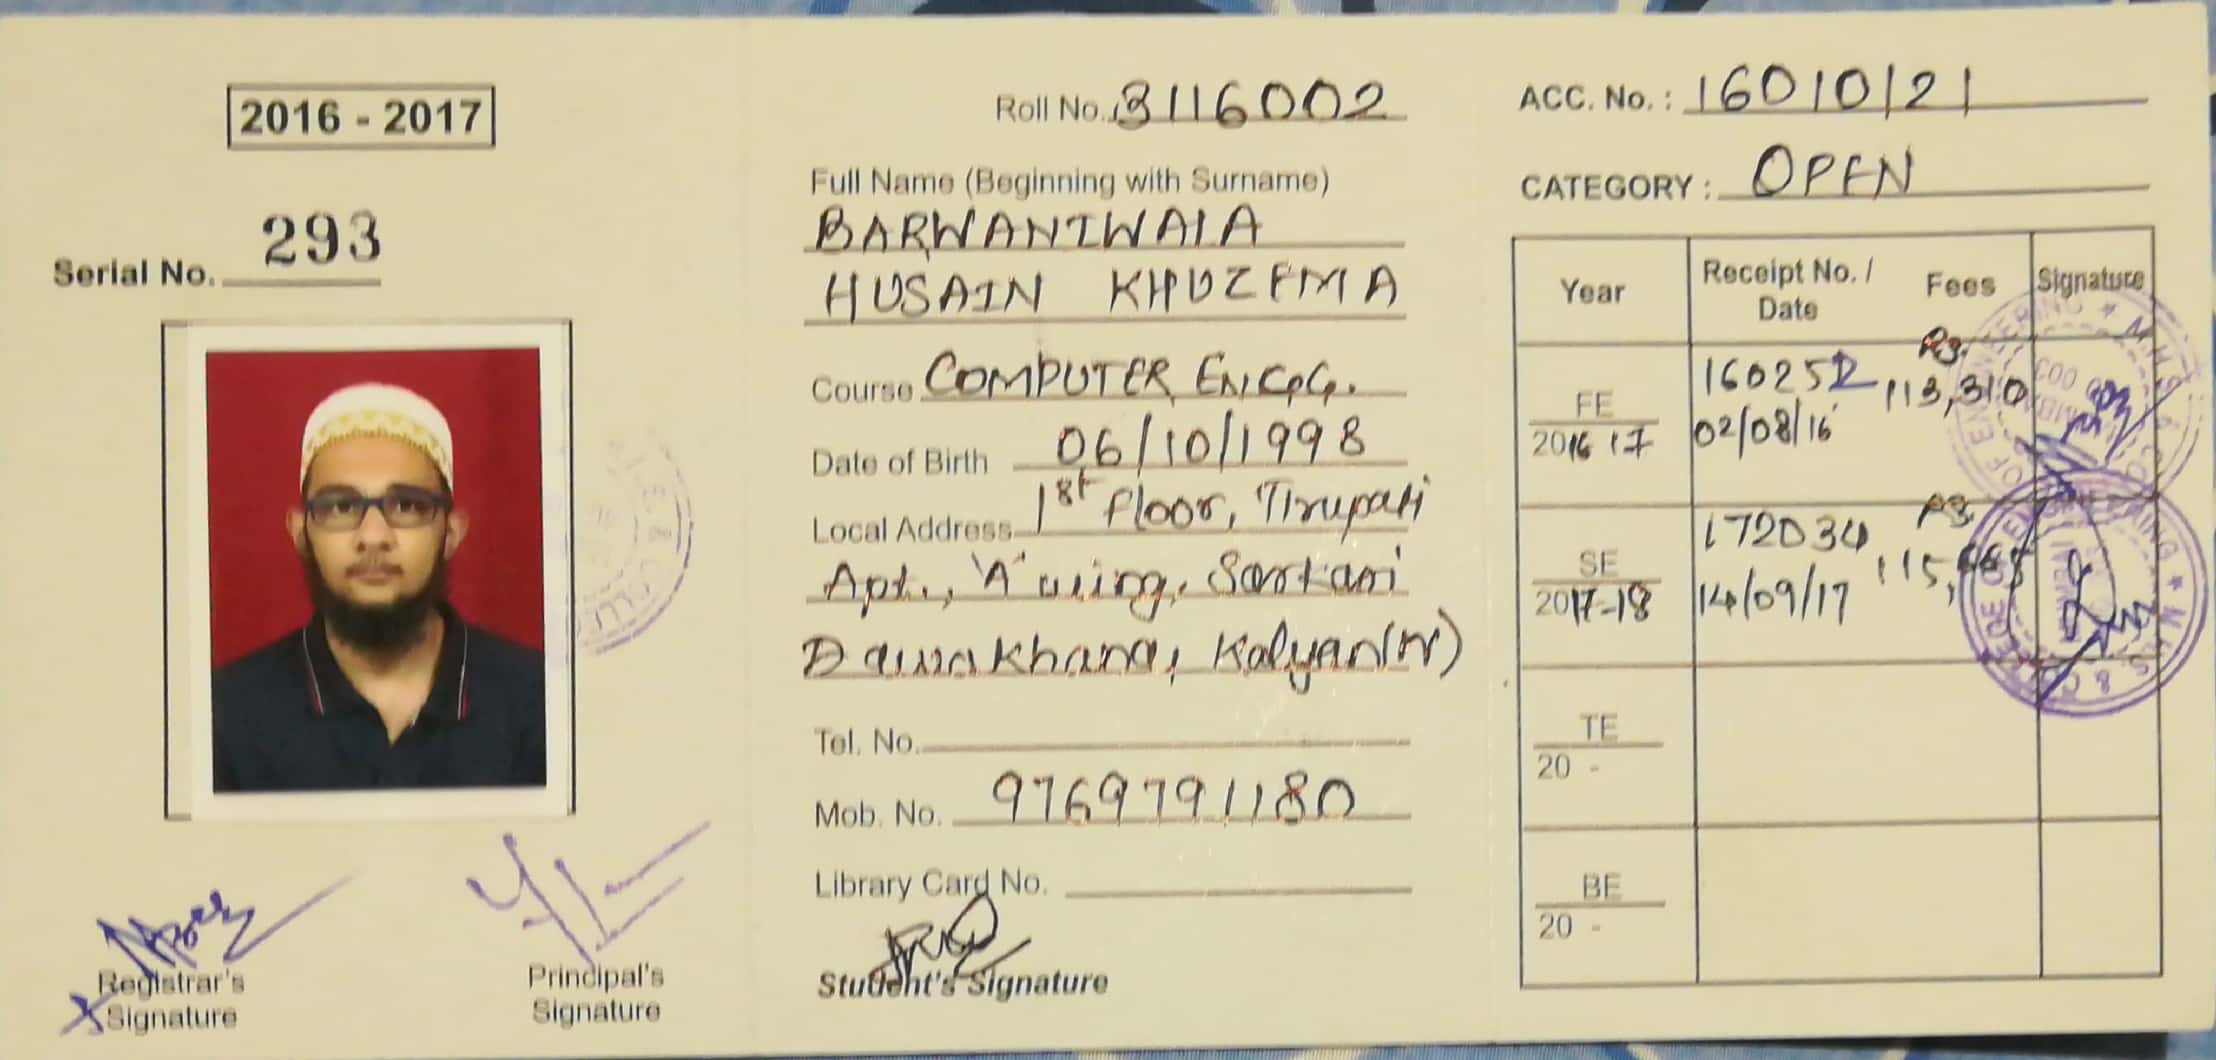 2016 - 2017
Serial No. 293
Registrar's
Signature
Principal's
Signature
Roll No. 3116002
Full Name (Beginning with Surname)
BARWANIWALA
HUSAIN KHUZEMA
Course COMPUTER ENGG.
Date of Birth 06/10/1998
Local Address 1st floor, Tirupati
Apt., 'A' wing, Sarkari
Dawakhana, Kalyan(W)
Tel. No.
Mob. No. 9769791180
Library Card No.
Student's Signature
ACC. No. : 16010121
CATEGORY : OPEN
Year Receipt No. / Date Fees Signature
FE 2016 17 160252 02/08/16 Rs. 113,310
SE 2017-18 172034 14/09/17 Rs. 115,
TE
20 -
BE
20 -